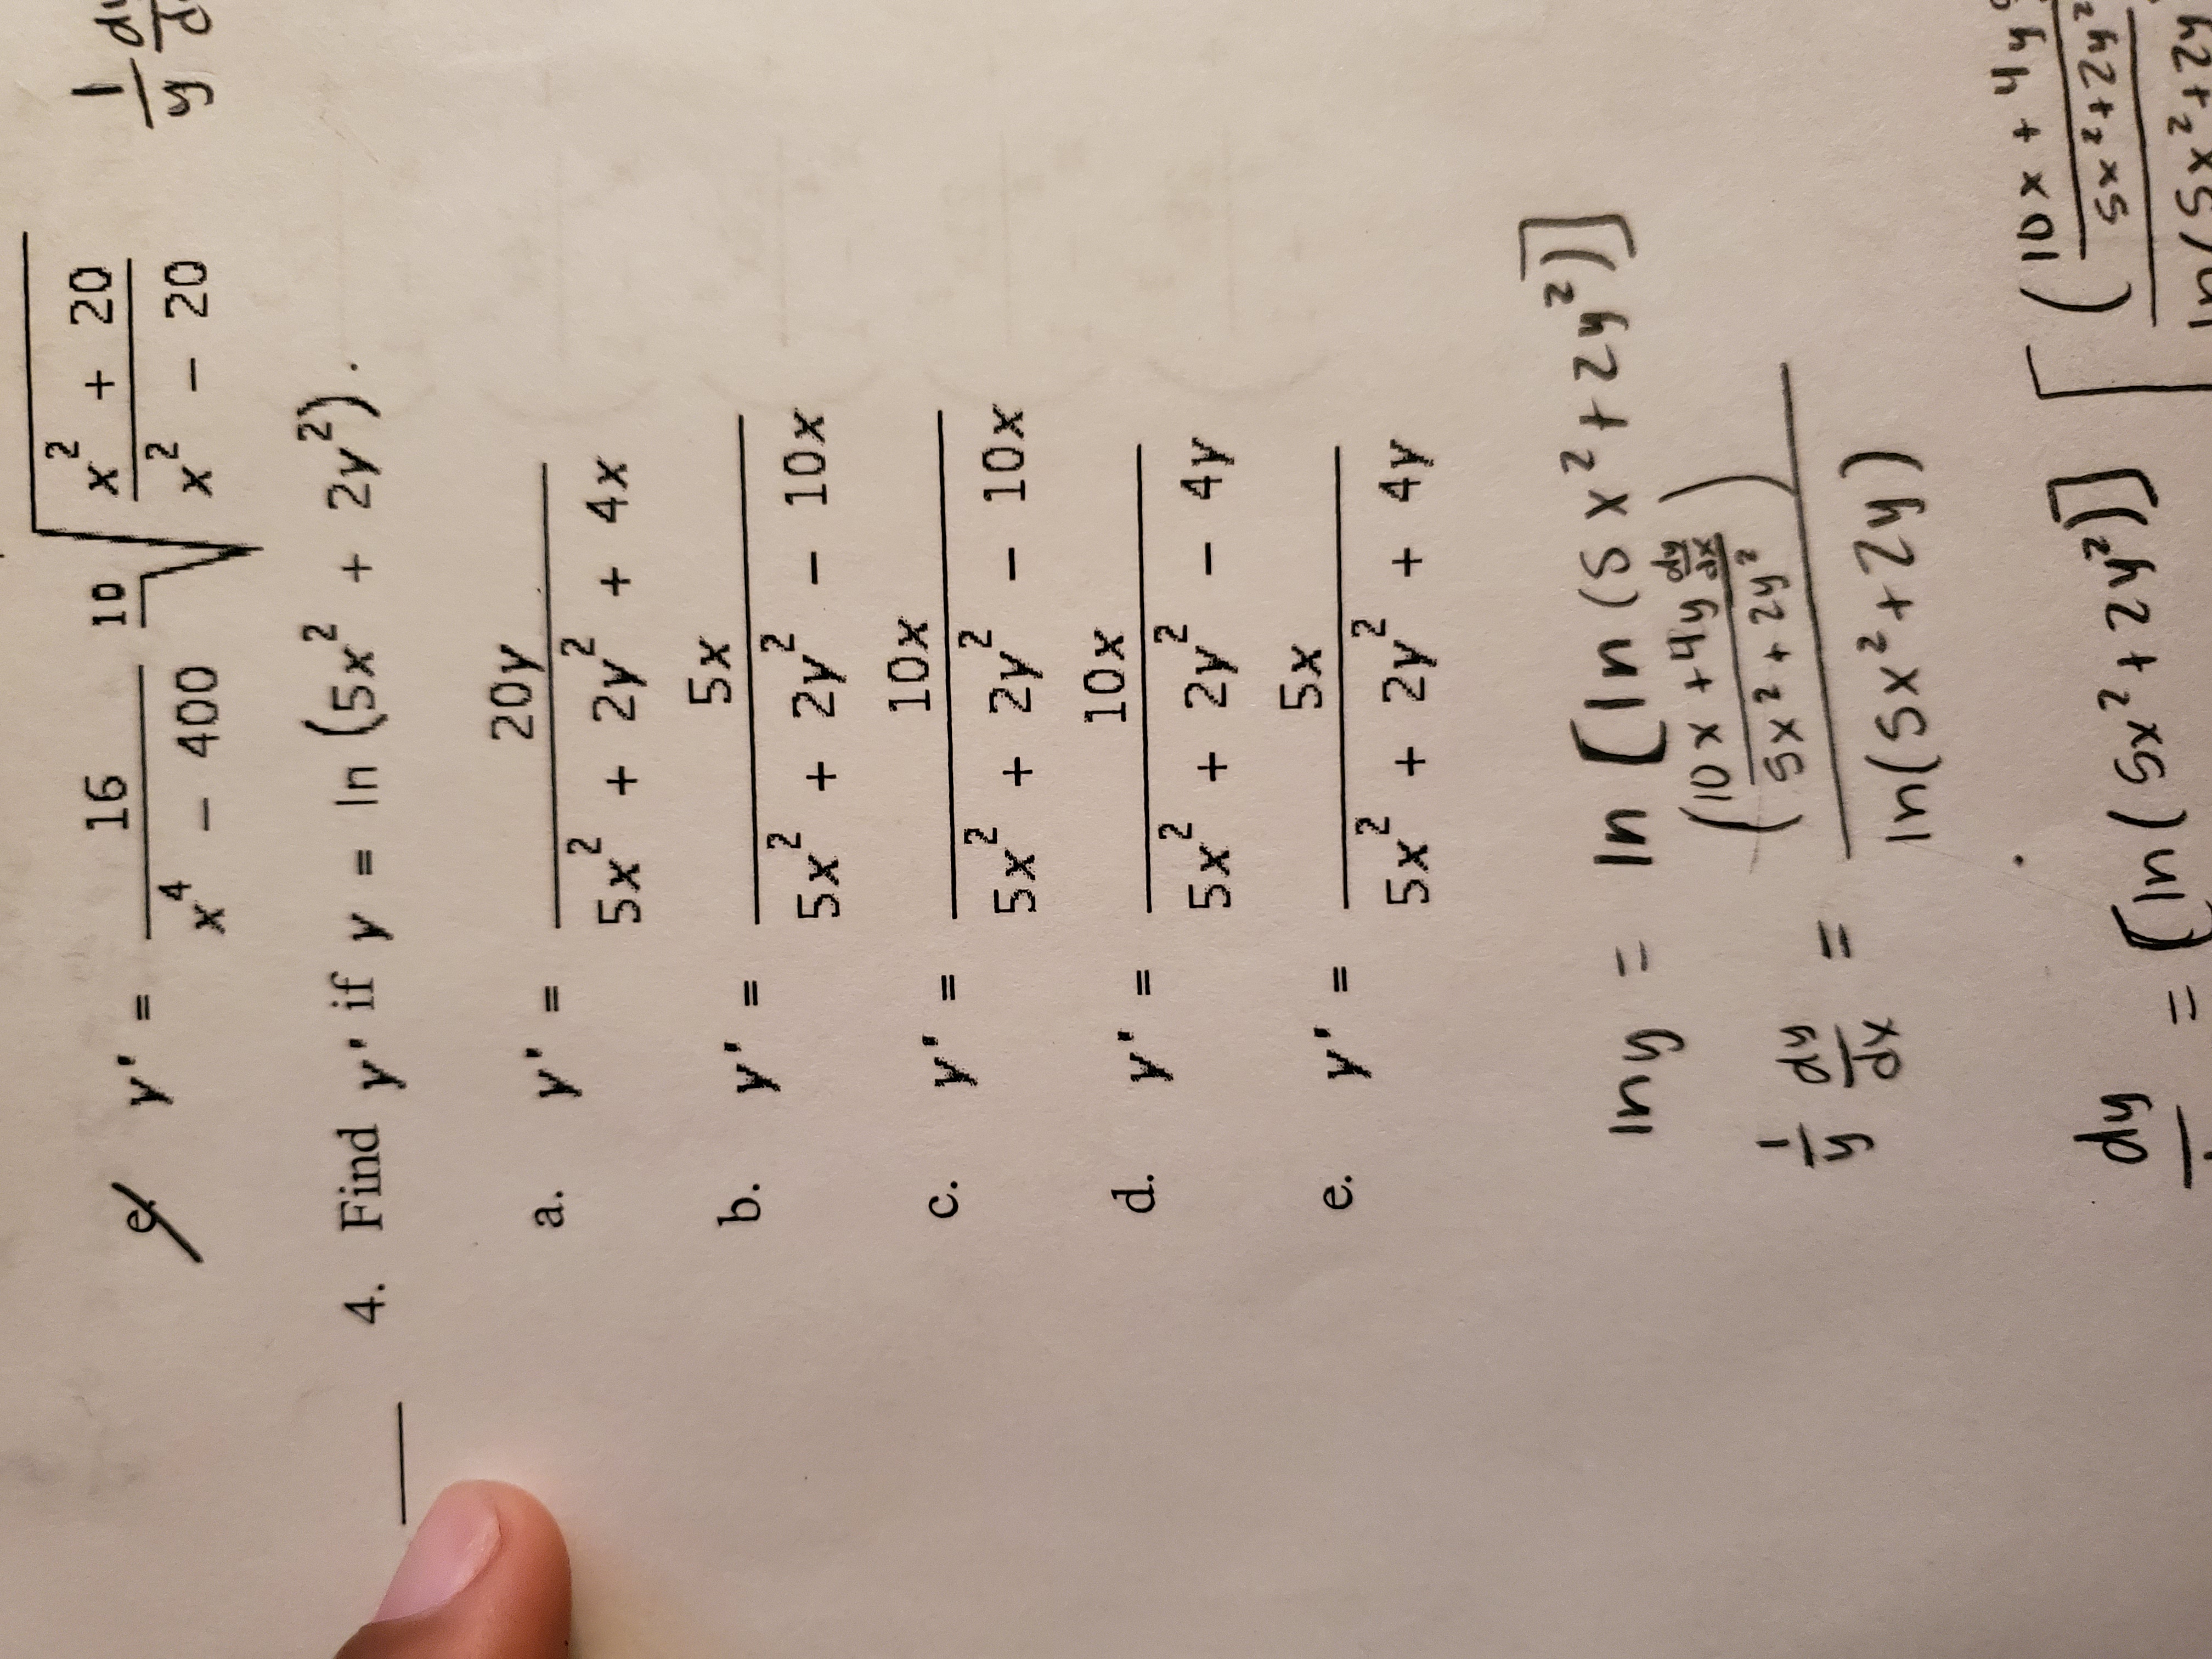 e. y' = 16 / (x^4 - 400) 10√((x^2 + 20) / (x^2 - 20)) 1/y
4. Find y' if y = ln (5x^2 + 2y^2).
a. y' = 20y / (5x^2 + 2y^2 + 4x)
b. y' = 5x / (5x^2 + 2y^2 - 10x)
c. y' = 10x / (5x^2 + 2y^2 - 10x)
d. y' = 10x / (5x^2 + 2y^2 - 4y)
e. y' = 5x / (5x^2 + 2y^2 + 4y)
ln y = ln [ln (5x^2 + 2y^2)]
1/y dy/dx = ((10x + 4y dy/dx) / (5x^2 + 2y^2)) / ln(5x^2 + 2y)
dy = [ln(5x^2 + 2y^2)] [((10x + 4y / 5x^2 + 2y^2 / ln(5x^2 + 2y